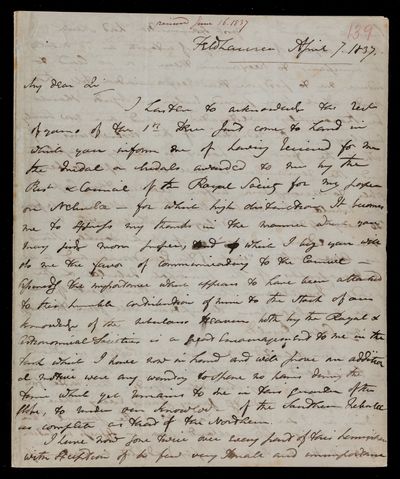 received June 16. 1837
139
Feldhausen April 7. 1837.
My dear Sir
I hasten to acknowledge the rect
of yours of the 1st just come to hand in
which you inform me of having received for me
the Medal or Medals awarded to me by the
Prest & Council of the Royal Society for my paper
on Nebulae – for which high distinction It becomes
me to express my thanks in the manner which you
may judge most proper, and which I beg you will
do me the favor of communicating to the Council –
the importance which appears to have been attached
to this humble contribution of mine to the stock of our
knowledge of the nebulous Heavens both by the Royal &
Astronomical Societies is a great encouragement to me in the
task which I have now in hand and will prove an addition
al motive were any wanting to spare no pains during the
time which yet remains to me in this quarter of the
Globe, to render our knowledge of the Southern Nebulae
as complete as that of the Northern.
I have now gone twice over every part of this hemisphere
with exception of a few very small and unimportant